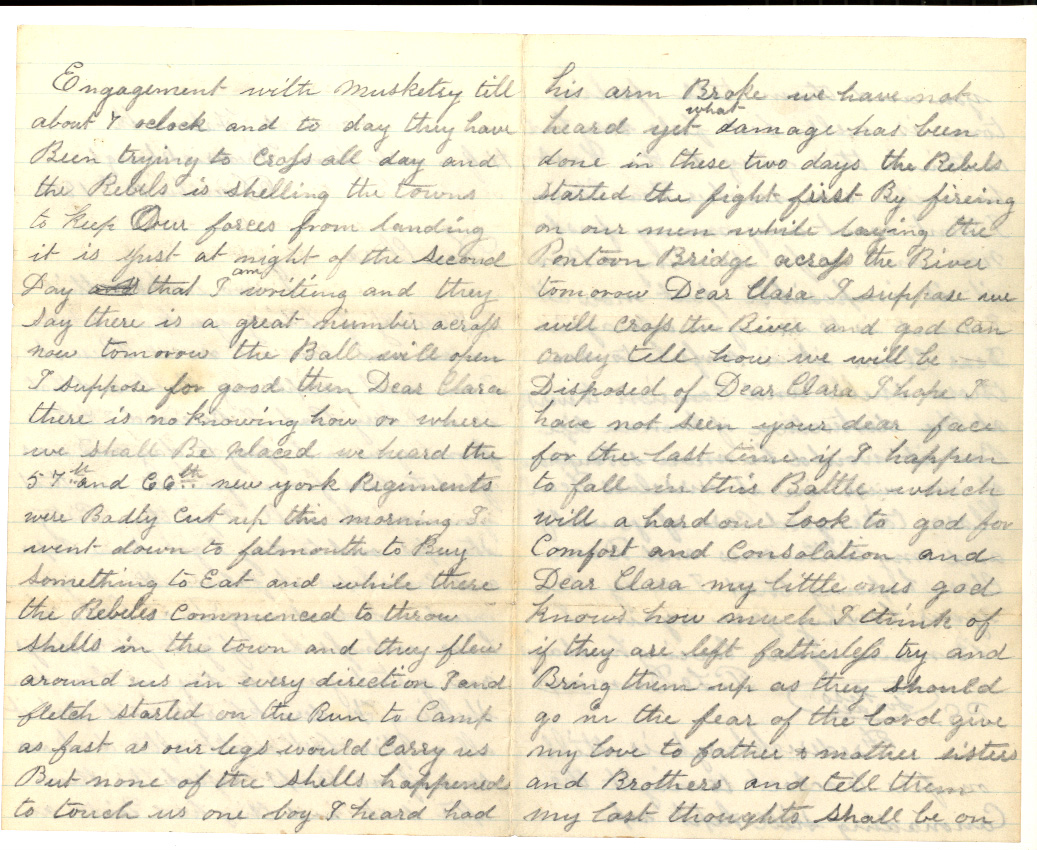 Engagement with musketry till
about 7 oclock and to day they have
Been trying to Cross all day and
the Rebels is shelling the towns
to keep Our forces from landing
it is just at night of the second
Day that I am writeing and they
say there is a great number across
now tomorow the Ball will open
I suppose for good then Dear Clara
there is no knowing how or where
we shall Be placed we heard the
57th and 66th new york Regiments
were Badly Cut up this morning I
went down to falmouth to Buy
something to Eat and while there
the Rebeles Commenced to throw
shells in the town and they flew
around us in every direction I and
fletch started on the Run to Camp
as fast as our legs would Carry us
But none of the shells happened
to touch us one boy I heard had
his arm Broke we have not
heard yet what damage has been
done in these two days the Rebels
started the fight first By fireing
on our men while laying the
Pontoon Bridge across the River
tomorow Dear Clara I suppose we
will Cross the River and god Can
onley tell how we will be
Disposed of Dear Clara I hope I
have not seen your dear face
for the last time if I happen
to fall in this Battle which
will a hard one look to god for
Comfort and Consolation and
Dear Clara my little ones god
knows how much I think of
if they are left fatherless try and
Bring them up as they should
go in the fear of the lord give
my love to father & mother sisters
and Brothers and tell them
my last thoughts shall be on